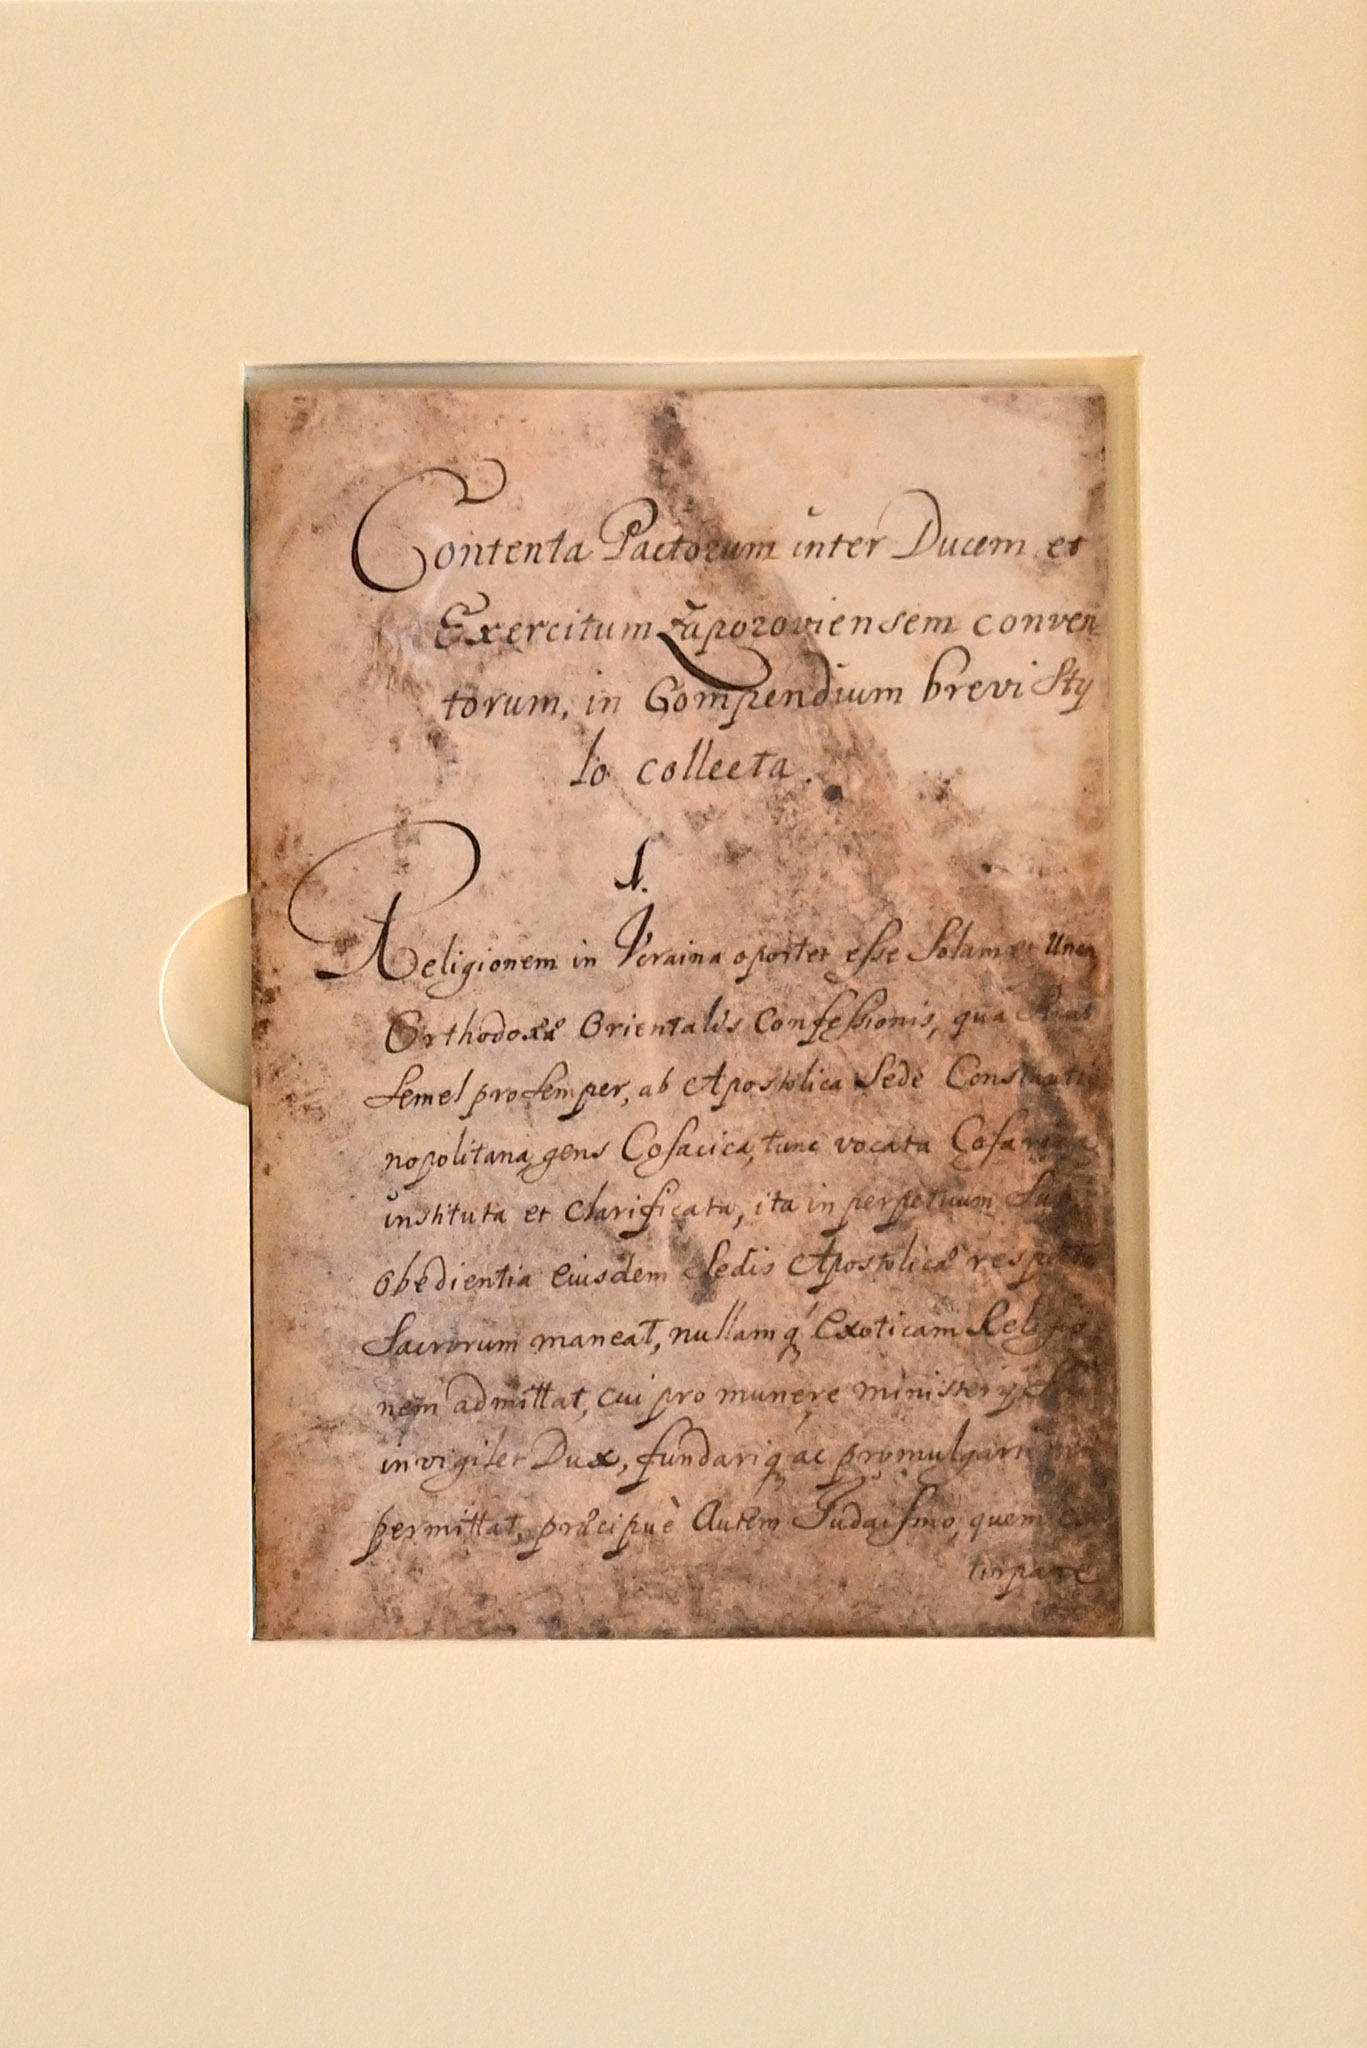 Contenta Pactorum inter Ducem et
Exercitum Zaporoviensem conven
torum, in Compendium brevi Sty
lo collecta.
1.
Religionem in Vcraina oportet esse Solam et Unam
Orthodoxæ Orientalis Confessionis, qua
Semel pro Semper, ab Apostolica Sede Constanti
nopolitana, gens Cosacica, tunc vocata
instituta et clarificata, ita in perpetuum Sub
obedientia eiusdem Sedis Apostolicæ
Sacrorum maneat, nullamq́ Exoticam Religio
nem admittat, cui pro munere ministerij
invigilet Dux, fundariq ac promulgari
permittat, præcipuè Autem Judaismo, quem
tirpare